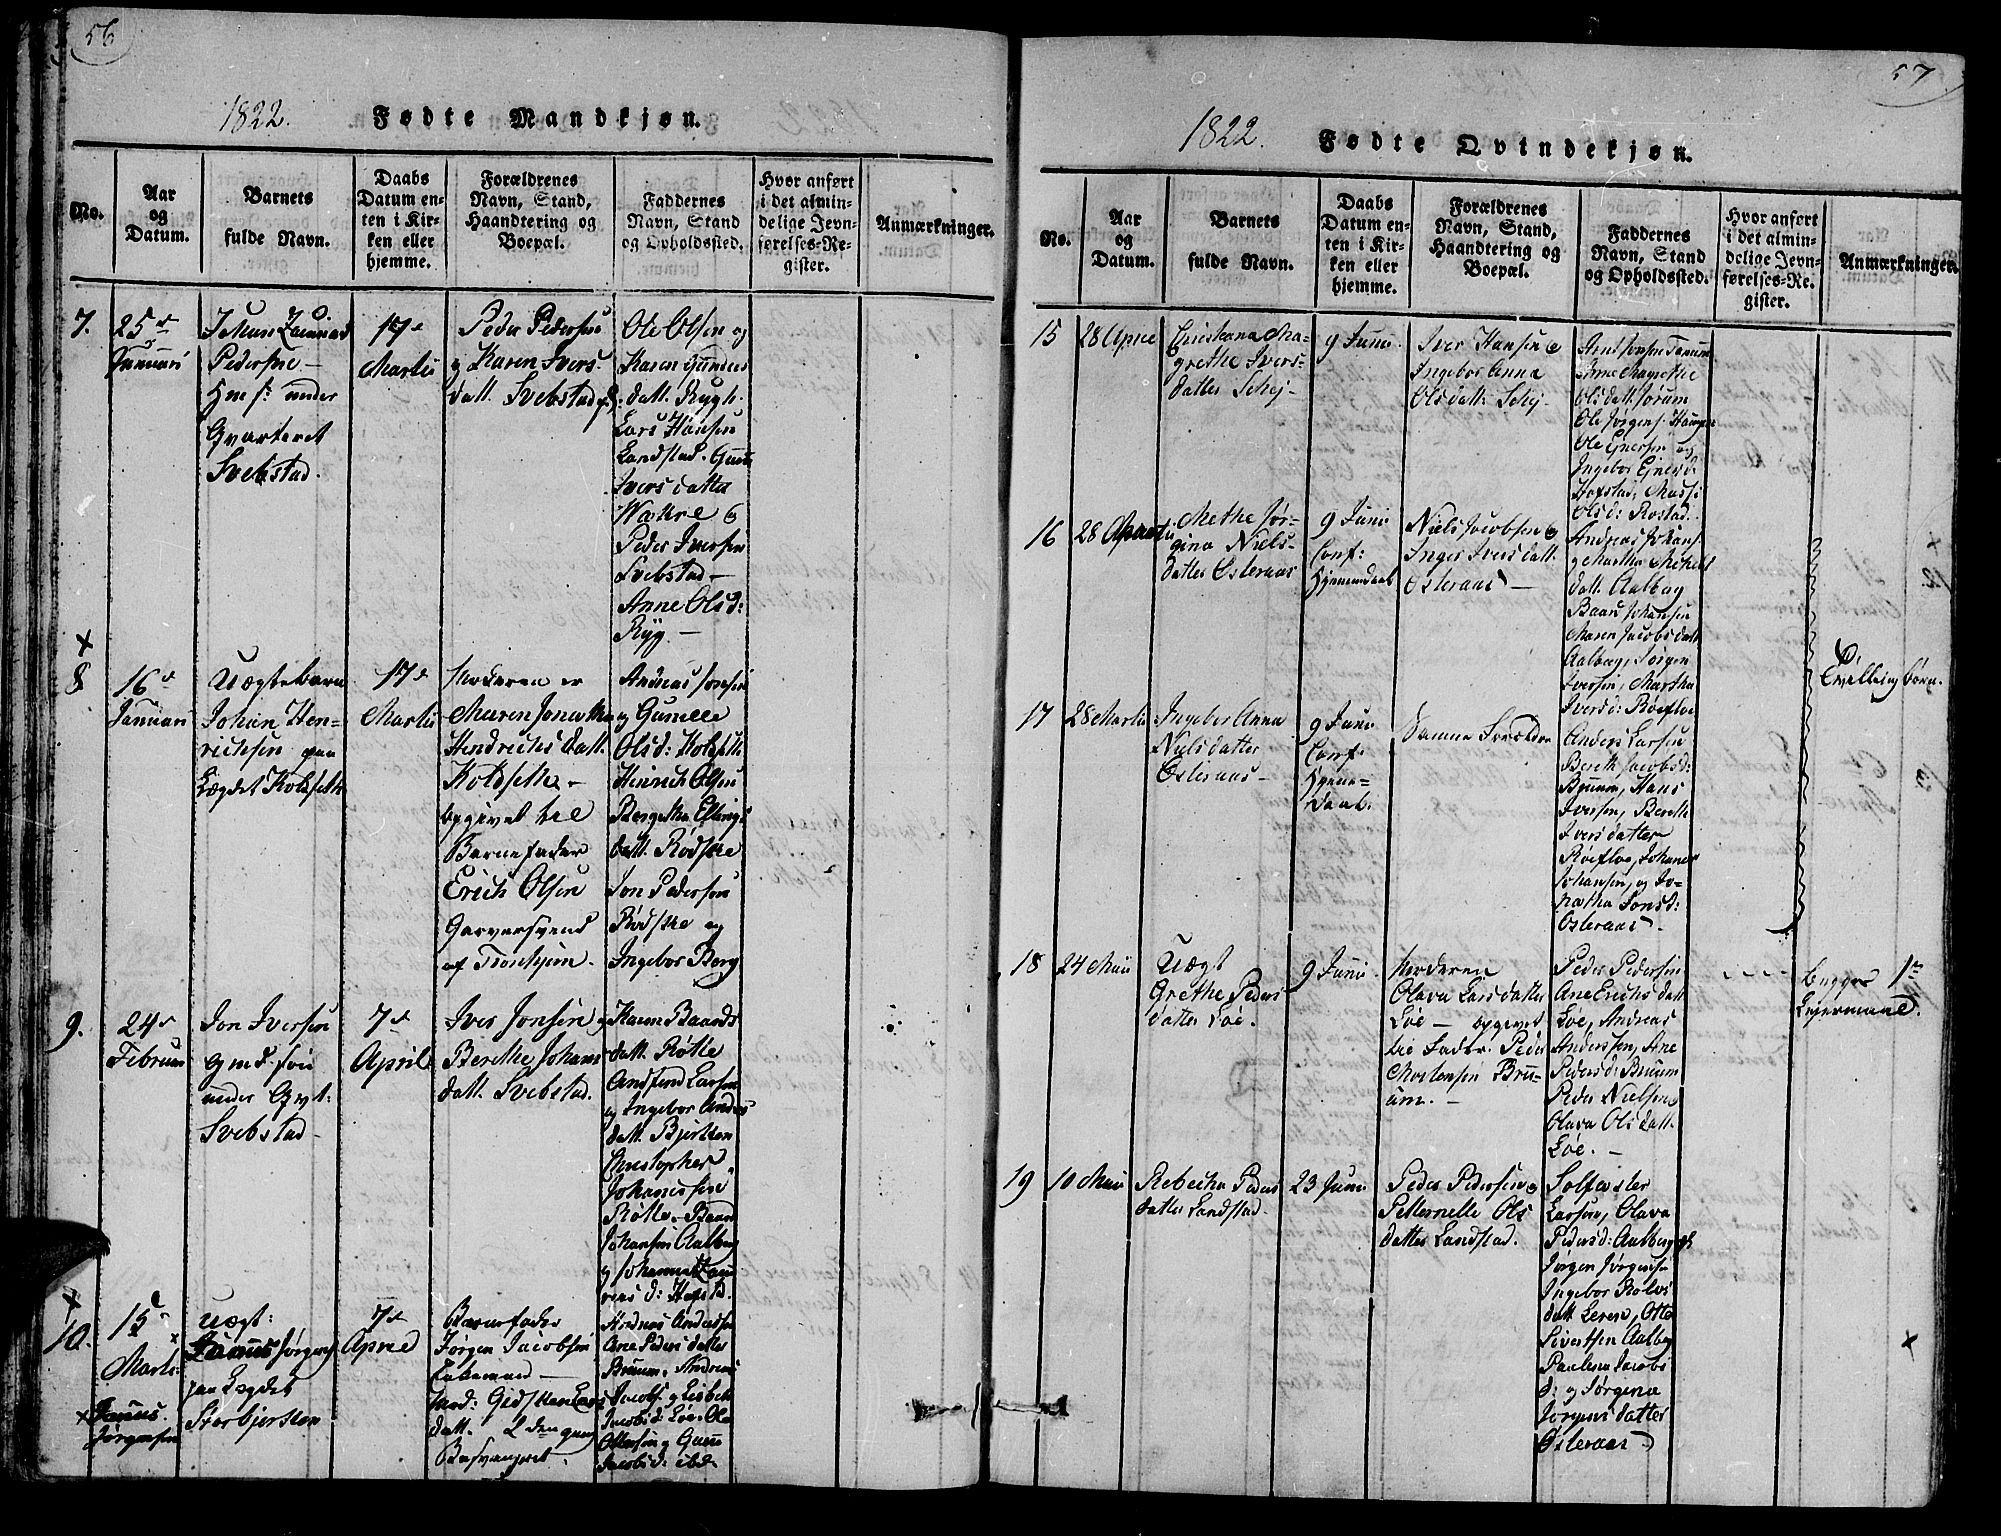 56
1822. Fødte Mandkjøn.
No.
Aar
og
Datum.
Barnets
fulde Navn.
Daabs
Datum en-
ten i Kir-
ken eller
hjemme.
Forældrenes
Navn, Stand,
Haandtering og
Boepæl.
Faddernes
Navn, Stand
og Opholdssted.
Hvor anført
i det almin-
delige Jevn-
førelses-Re-
gister.
Anmærkninger.
7.
25de
Januari
Johan
Pedersøn
under
Qvarteret
Svebstad.
17de
Martii
Peder Pedersen
og Karen Ivers-
datt. Svebstad
Ole Olsen og
Karen
datt. Rygh.
Lars Hansen
Landstad.
Iversdatter
Wahre
Peder Iversen
Svebstad -
Anne Olsd:
Ryg. -
×
8
16de
Januari
Uægtebarn
Johan Hen-
richsen paa
Lægdet Holsseth
17de
Martii
Moderen er
Maren Jonetha
Hendrichsdatt.
Holdseth -
opgivet til
Barnefader
Erich Olsen
Garversvend
af Tronhjem.
Andreas Jonsen
og Gunelle
Olsd: Holseth
Heinrich Olsen
Bergetha Ellings
datt. Rødskie
Jon Pedersen
Rødskie og
Ingebor Berg
9.
24de
Februar
Jon Iversen
under Qvt:
Svebstad -
7de
April
Iver Jonsen og
Berethe Johans
datt. Svebstad.
Karen Baards
datt. Røtte
Andfind Larsen
og Ingebor Anders
datt. Bjerkten
Christopher
Johannesen
Røtte. Baard
Johansen Aalberg
og Johanna
d: Hofstad.
×
10.
15de
Martii
× Janus
Jørgensen
Uægt:
Janus Jørgens
paa Lægdet
Storbjersten
7de
April
Barnefader
Jørgen Jacobsen
Enkemand -
Mod: Gidsken Lars
datt. 2den gang
Besvangret.
Andreas Andersen
Ane Peders datter
Bruum. Andreas
Jacobs. og Lisbeth
Jacobsd: Løe. Ole
Ottersen og
Jacobsd: ibd.
57
1822. Fødte Qvindekjøn.
No.
Aar
og
Datum.
Barnets
fulde Navn.
Daabs
Datum en-
ten i Kir-
ken eller
hjemme.
Forældrenes
Navn, Stand,
Haandtering og
Boepæl.
Faddernes
Navn, Stand
og Opholdssted.
Hvor anført
i det almin-
delige Jevn-
førelses-Re-
gister.
Anmærkninger.
15
28 April
Christiana Ma-
grethe Ivers-
datter Schej-
9 Junii
Iver Hansen og
Ingebor Anna
Olsdatt. Schej-
Arnt Jonsen Tanum
Anne Magrethe
Olsdatt. Jørum
Ole Jørgens. Haugen
Ole Ejnersen og
Ingebor Ejnersd.
Hofstad, Massi
Olsd: Rostad.
16
28 Martii
Methe Jør-
gina Niels-
datter Østeraas
9 Junii
Conf:
Hjemmedaab
Niels Jacobsen og
Inger Iversdatt.
Østeraas -
Andreas Johans.
og Martha Michels
datt. Aalberg
Baar Johansen
Maren Jacobsdatt.
Aalberg, Jørgen
Iversen, Martha
Iversd: Røeflo
Tvilling børn.
17
28 Martii
Ingebor Anna
Nielsdatter
Østeraas -
9 Junii
Conf:
Hjeme-
daab.
Samme Forældre
Anders Larsen
Bereth Jacobsd:
Bruum, Hans
Iversen, Berethe
Iversdatter
Røeflo, Johanes
Johansen, og Jo-
netha Jonsd:
Østeraas
18
24 Mai
Uægt
Grethe Peders
datter Løe.
9 Junii
Moderen
Olava Larsdatter
Løe - opgivet
til Fader. Peder
Mortensen Bru-
um. -
Peder Pedersen
Ane Erichsdatt.
Løe, Andreas
Anderssen, Ane
Pedersd: Bruum
Peder Nielsen og
Olava Olsdatt.
Løe. -
begges 1ste
Lejermaal.
19
10 Mai
Rebecha Peders
datter Landstad.
23 Junii
Peder Pedersen og
Petternelle Ols
datter Landstad.
Solfester
Larsen, Olava
Pedersd: Aalberg
Jørgen Jørgensen
Ingebor Rolvs
datt. Leren, Otte
Sivertsen Aalberg
Paulina Jacobs
d: og Jørgina
Jørgensdatter
Østeraas
×